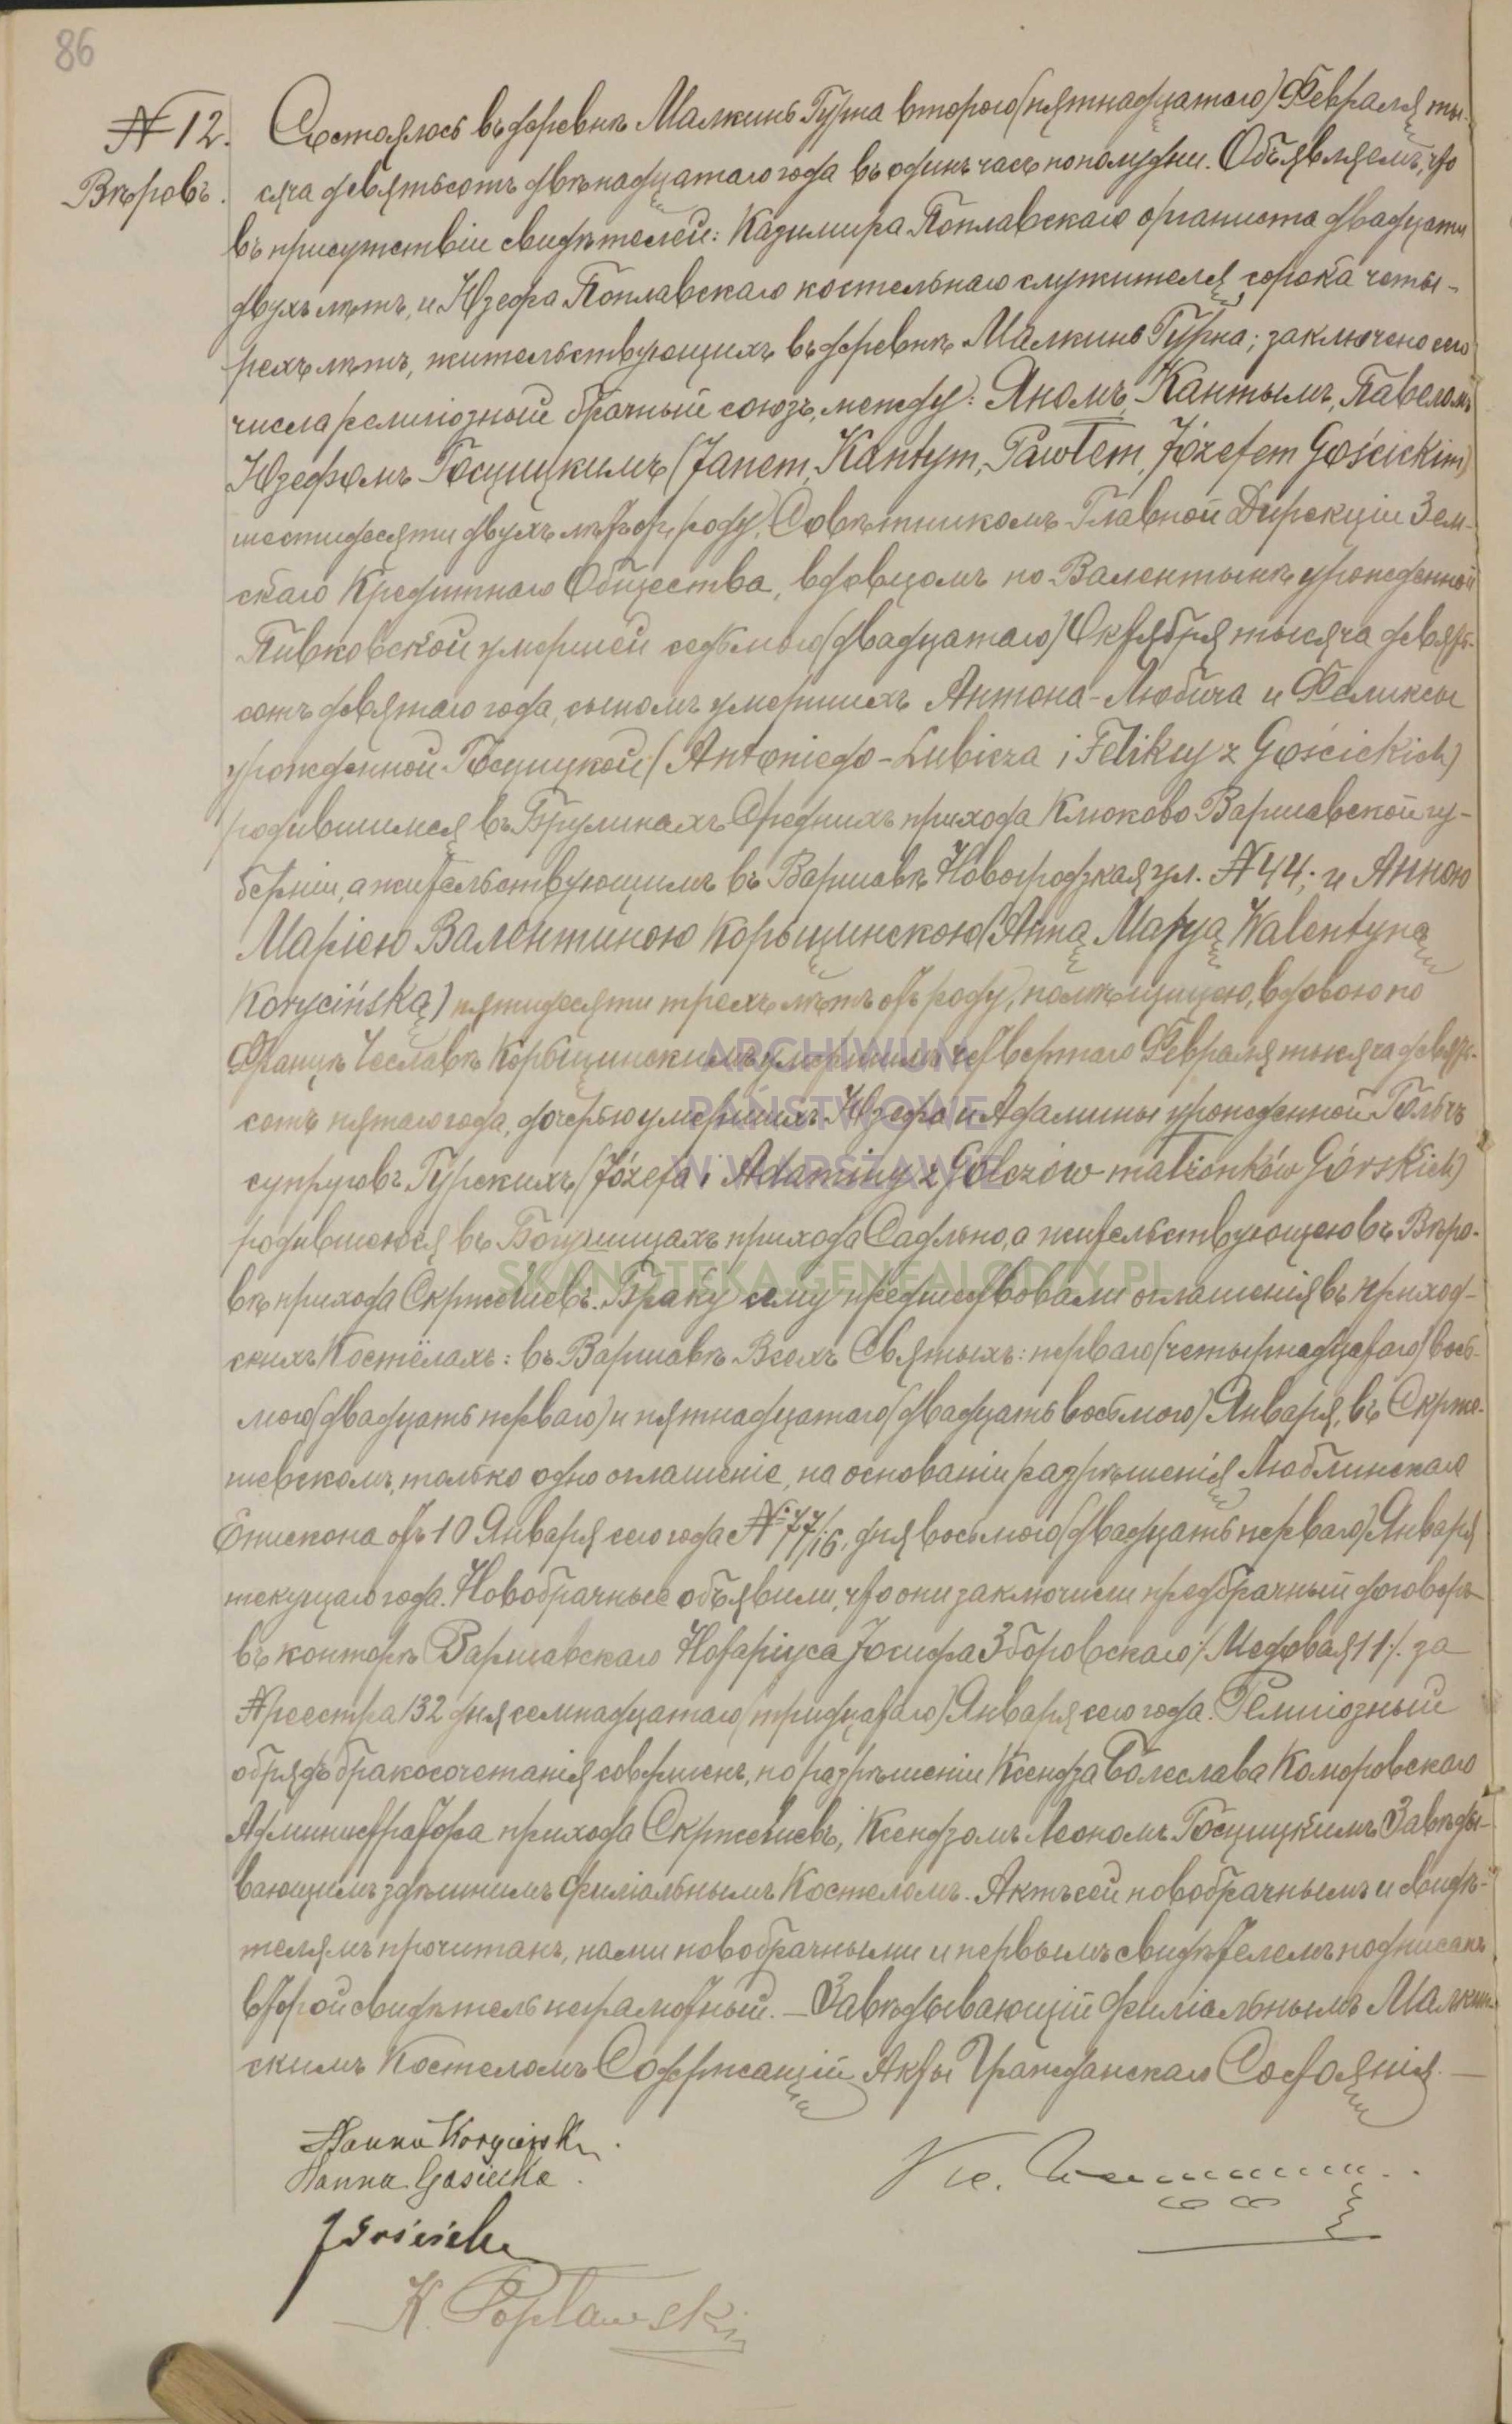 86
№ 12.
Вѣровъ.
Состоялось въ деревнѣ Малкинь Гурна второго (пятнадцатаго) Февраля ты-
сяча девятьсотъ двѣнадцатаго года въ одинъ часъ пополудни. Объявляемъ, что
въ присутствіи свидѣтелей: Казимира Поплавскаго органиста двадцати
двухъ лѣтъ, и Юзефа Поплавскаго костельнаго служителя, сорока четы-
рехъ лѣтъ, жительствующихъ въ деревнѣ Малкинь Гурна; заключено сего
числа религіозный брачный союзъ, между: Яномъ, Кантымъ, Павеломъ
Юзефомъ Госцицкимъ (Janem, Kantym, Pawłem, Józefem Gościckim)
шестидесяти двухъ лѣтъ отъ роду, Совѣтникомъ Главной Дирекціи Зем-
скаго Кредитнаго Общества, вдовцомъ по Валентынѣ урожденной
Пивковской умершей седьмого (двадцатаго) Октября тысяча девять-
сотъ девятаго года, сыномъ умершихъ Антона-Любича и Феликсы
урожденной Госцицкой (Antoniego-Lubicza i Feliksy z Gościckich)
родившимся въ Брулинахъ Среднихъ прихода Клюково Варшавской гу-
берніи, а жительствующимъ въ Варшавѣ Новогродзкая ул. № 44; и Анною
Маріею Валентиною Корыцинскою (Anną Maryą Walentyną
Korycińską) пятидесяти трехъ лѣтъ отъ роду, помѣщицею, вдовою по
Францѣ Чеславѣ Корыцинскимъ умершимъ четвертаго Февраля тысяча девять-
сотъ пятаго года, дочерью умершихъ Юзефа и Адамины урожденной Гольчъ
супруговъ Гурскихъ (Józefa i Adaminy z Golczów małżonków Górskich)
родившеюся въ Богушицахъ прихода Садльно, а жительствующею въ Вѣро-
вѣ прихода Скржешевъ. Браку сему предшествовали оглашенія въ приход-
скихъ Костёлахъ: въ Варшавѣ Всехъ Святыхъ: перваго (четырнадцатаго) вось-
мого (двадцать перваго) и пятнадцатаго (двадцать восьмого) Января, въ Скрже-
шевскомъ, только одно оглашеніе, на основаніи разрѣшенія Люблинскаго
Епископа отъ 10 Января сего года № 77/16, дня восьмого (двадцать перваго) Января
текущаго года. Новобрачные объявили, что они заключили предбрачный договоръ
въ конторѣ Варшавскаго Нотаріуса Іосифа Зборовскаго /Медовая 11/. за
№ реестра 132 дня семнадцатаго (тридцатаго) Января сего года. Религіозный
обрядъ бракосочетанія совершенъ, по разрѣшеніи Ксендза Болеслава Коморовскаго
Администратора прихода Скржешевъ, Ксендзомъ Леономъ Госцицкимъ Завѣды-
вающимъ здѣшнимъ Филіальнымъ Костеломъ. Актъ сей новобрачнымъ и свидѣ-
телямъ прочитанъ, нами новобрачными и первымъ свидѣтелемъ подписанъ
второй свидѣтель неграмотный. — Завѣдывающій Филіальнымъ Малкин-
скимъ Костеломъ Содержащій Акты Гражданскаго Состоянія. —
Hanna Korycińska.
Hanna Gościcka.
J Gościcki
K. Popławski
ARCHIWUM
PAŃSTWOWE
W WARSZAWIE
SKANOTEKA.GENEALODZY.PL